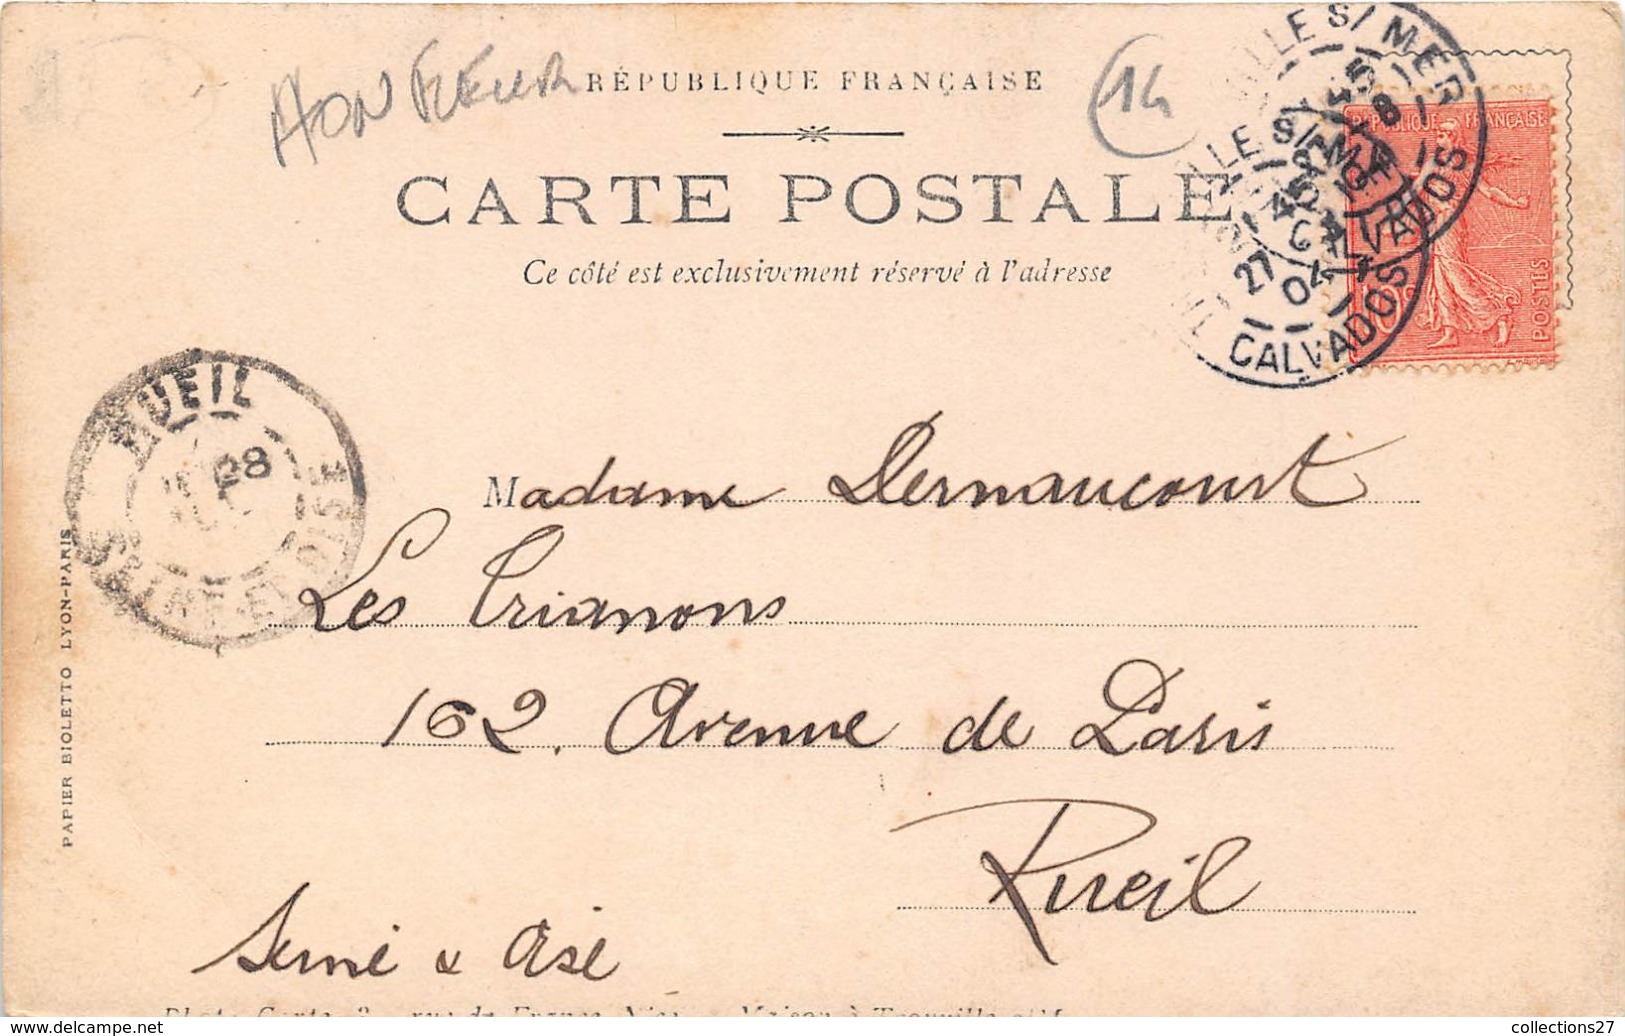 HONFLEUR
14
RÉPUBLIQUE FRANÇAISE
CARTE POSTALE
Ce côté est exclusivement réservé à l'adresse
VILLE S/ MER
CALVADOS
VILLE S/ MER
27
04
CALVADOS
RÉPUBLIQUE FRANÇAISE
10c
POSTES
RUEIL
28
SEINE ET OISE
Madame Dernaucourt
Les Trianons
162. Avenue de Paris
Rueil
Seine & Oise
PAPIER BIOLETTO LYON-PARIS
collections27